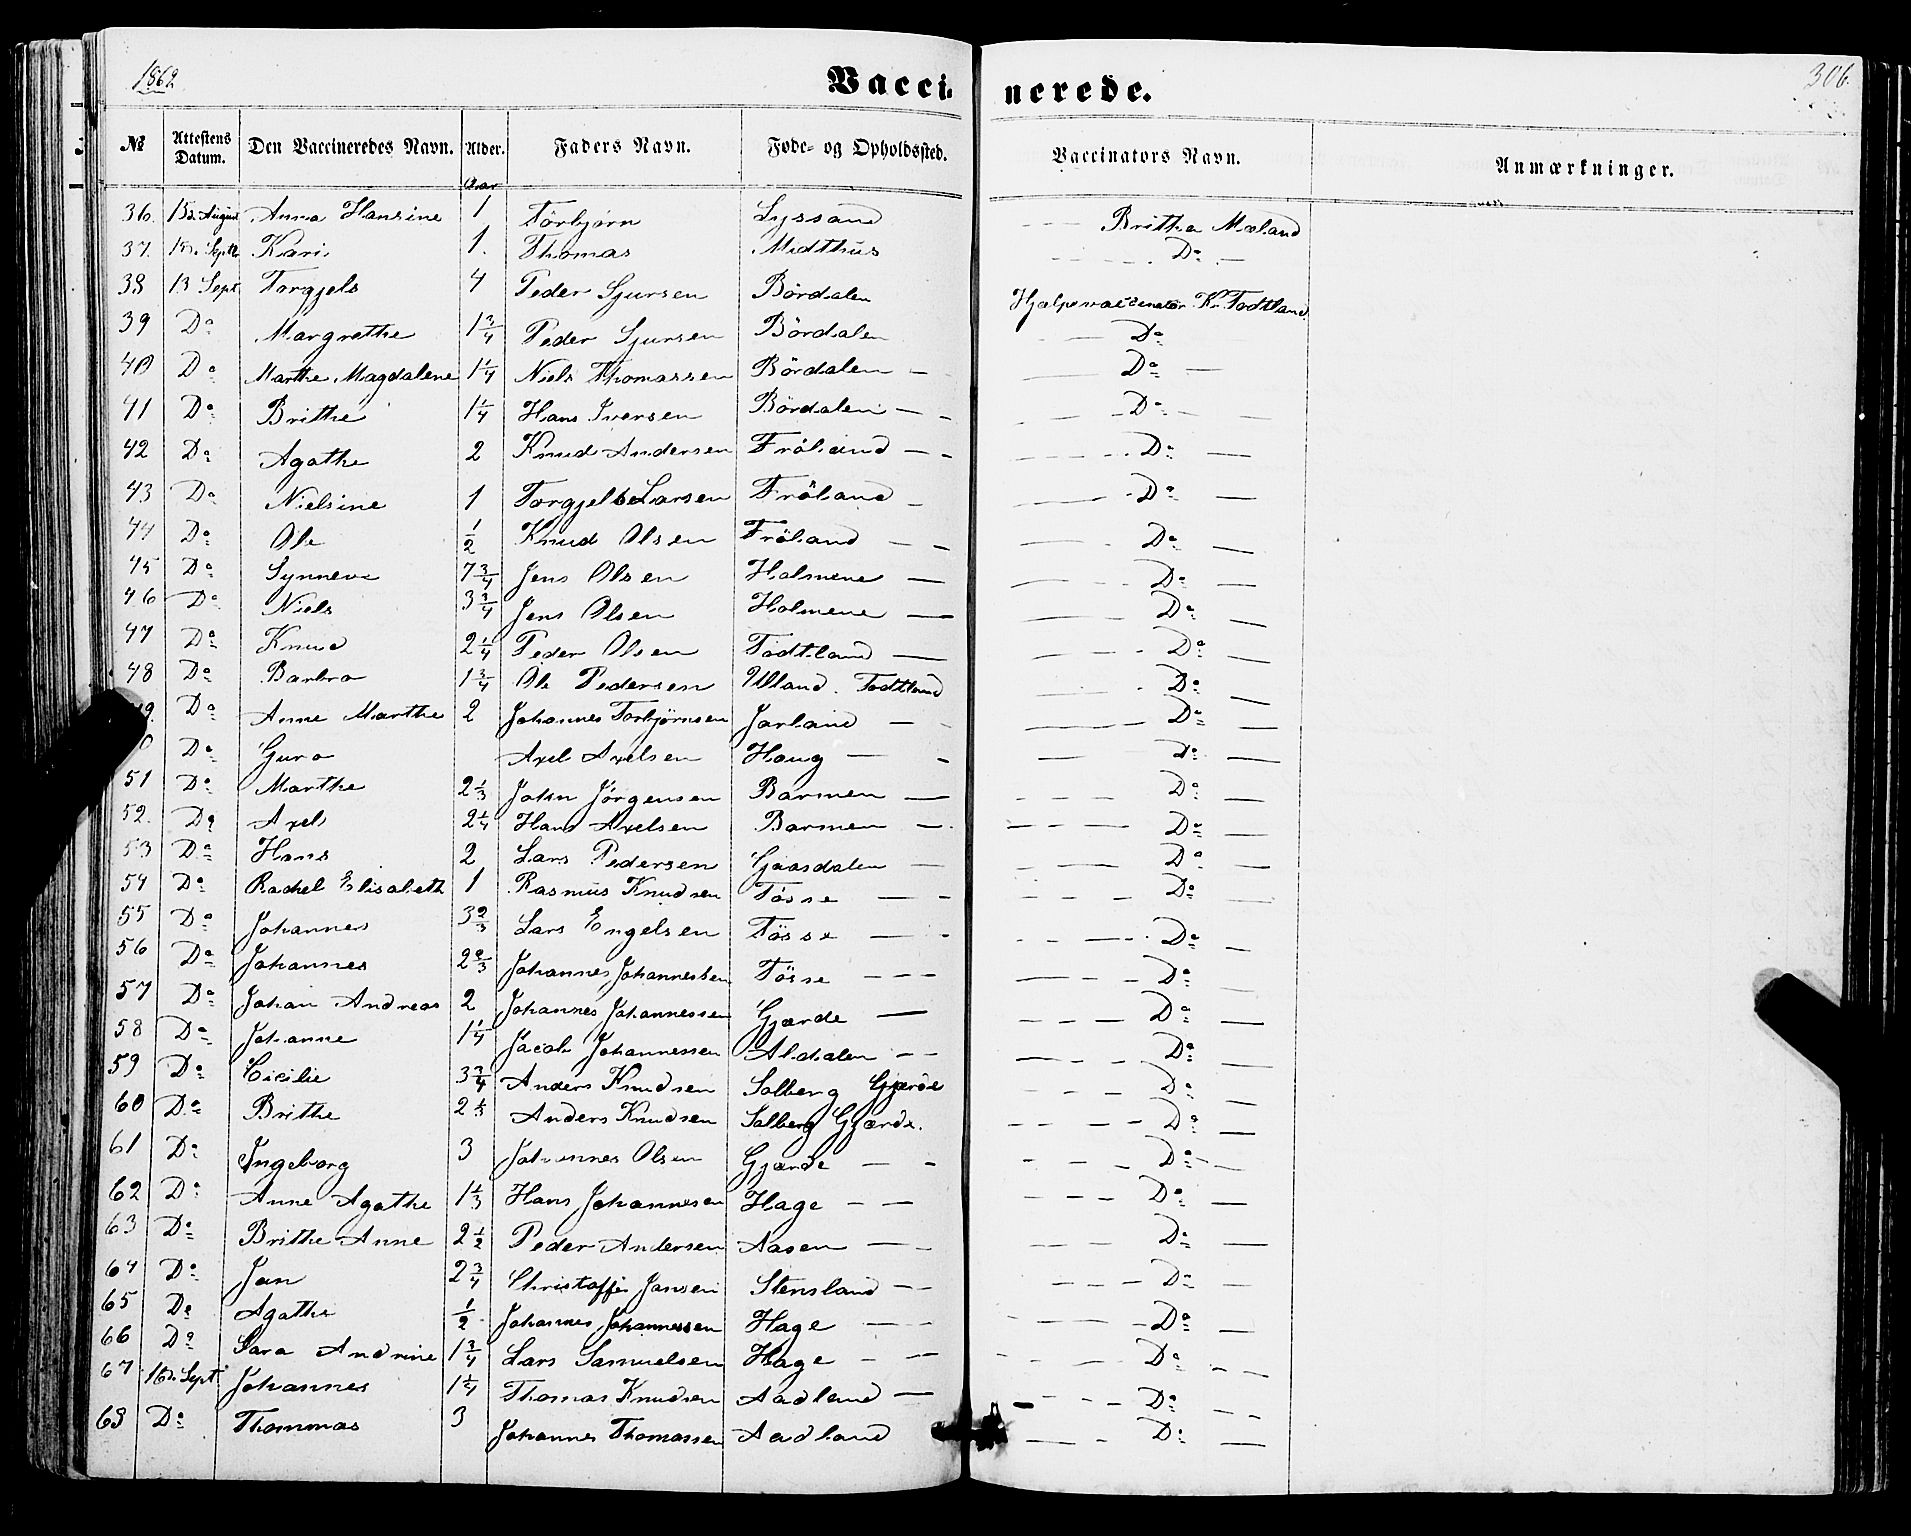 1862
Vacci- nerede.
306.
№ Attestens Datum. Den Vaccineredes Navn. Alder. Faders Navn. Føde- og Opholdssted. Vaccinators Navn. Anmærkninger.
Aar
36. 15d. August Anna Hansine 1 Törbjørn Lyssand — Brithe Mæland
37. Septb Kari 1. Thomas Midthus — Do —
38 13 Sept Torgjels 4 Peder Sjursen Bördalen Hjælpevaccinatör K. Todtland.
39 Do Margrethe 1 3/4 Peder Sjursen Bördalen — Do
40 Do Marthe Magdalene 1 1/4 Niels Thomassen Bördalen — Do —
41 Do Brithe 1 1/4 Hans Iversen Bördalen — Do —
42 Do Agathe 2 Knud Andersen Fröland — Do —
43 Do Nielsine 1 Torgjels Larsen Fröland — Do —
44 Do Ole 1/2 Knud Olsen Fröland — Do —
45 Do Synneve 7 3/4 Jens Olsen Holmene — Do —
46 Do Niels 3 3/4 Jens Olsen Holmene — Do —
47 Do Knud 2 1/4 Peder Olsen Todtland — Do —
48 Do Barbro 1 3/4 Ole Pedersen Ulland. Todtland — Do —
49. Do Anne Marthe 2 Johannes Torbjörnsen Jarland — Do —
0 Do Guro Axel Axelsen Haug — Do —
51 Do Marthe 2 1/3 John Jörgensen Barmen — Do —
52. Do Axel 2 1/4 Hans Axelsen Barmen — Do —
53 Do Hans 2 Lars Pedersen Gaasdalen — Do —
54 Do Rachel Elisabeth 1 Rasmus Knudsen Tösse — Do —
55 Do Johannes 3 2/3 Lars Engelsen Tösse — Do —
56 Do Johannes 2 2/3 Johannes Johannessen Tösse — Do —
57 Do Johan Andreas 2 Johannes Johannessen Gjærde — Do —
58 Do Johanne 1 1/4 Jacob Johannessen Aldalen — Do —
59 Do Cicilie 3 3/4 Anders Knudsen Solberg Gjærde — Do —
60 Do Brithe 2 1/3 Anders Knudsen Solberg Gjærde. — Do —
61 Do Ingeborg 3 Johannes Olsen Gjærde — Do —
62 Do Anne Agathe 1 1/3 Hans Johannesen Hage — Do —
63 Do Brithe Anne 2 1/2 Peder Andersen Aasen — Do —
64 Do Jan 2 3/4 Christoffer Jansen Stensland — Do —
65 Do Agathe 1/2 Johannes Johannessen Hage — Do —
66 Do Sara Andrine 1 3/4 Lars Samuelsen Hage — Do —
67 16d. Sept Johannes 1 1/4 Thomas Knudsen Aadland — Do —
68 Do Thommas 3 Johannes Thomassen Aadland — Do —